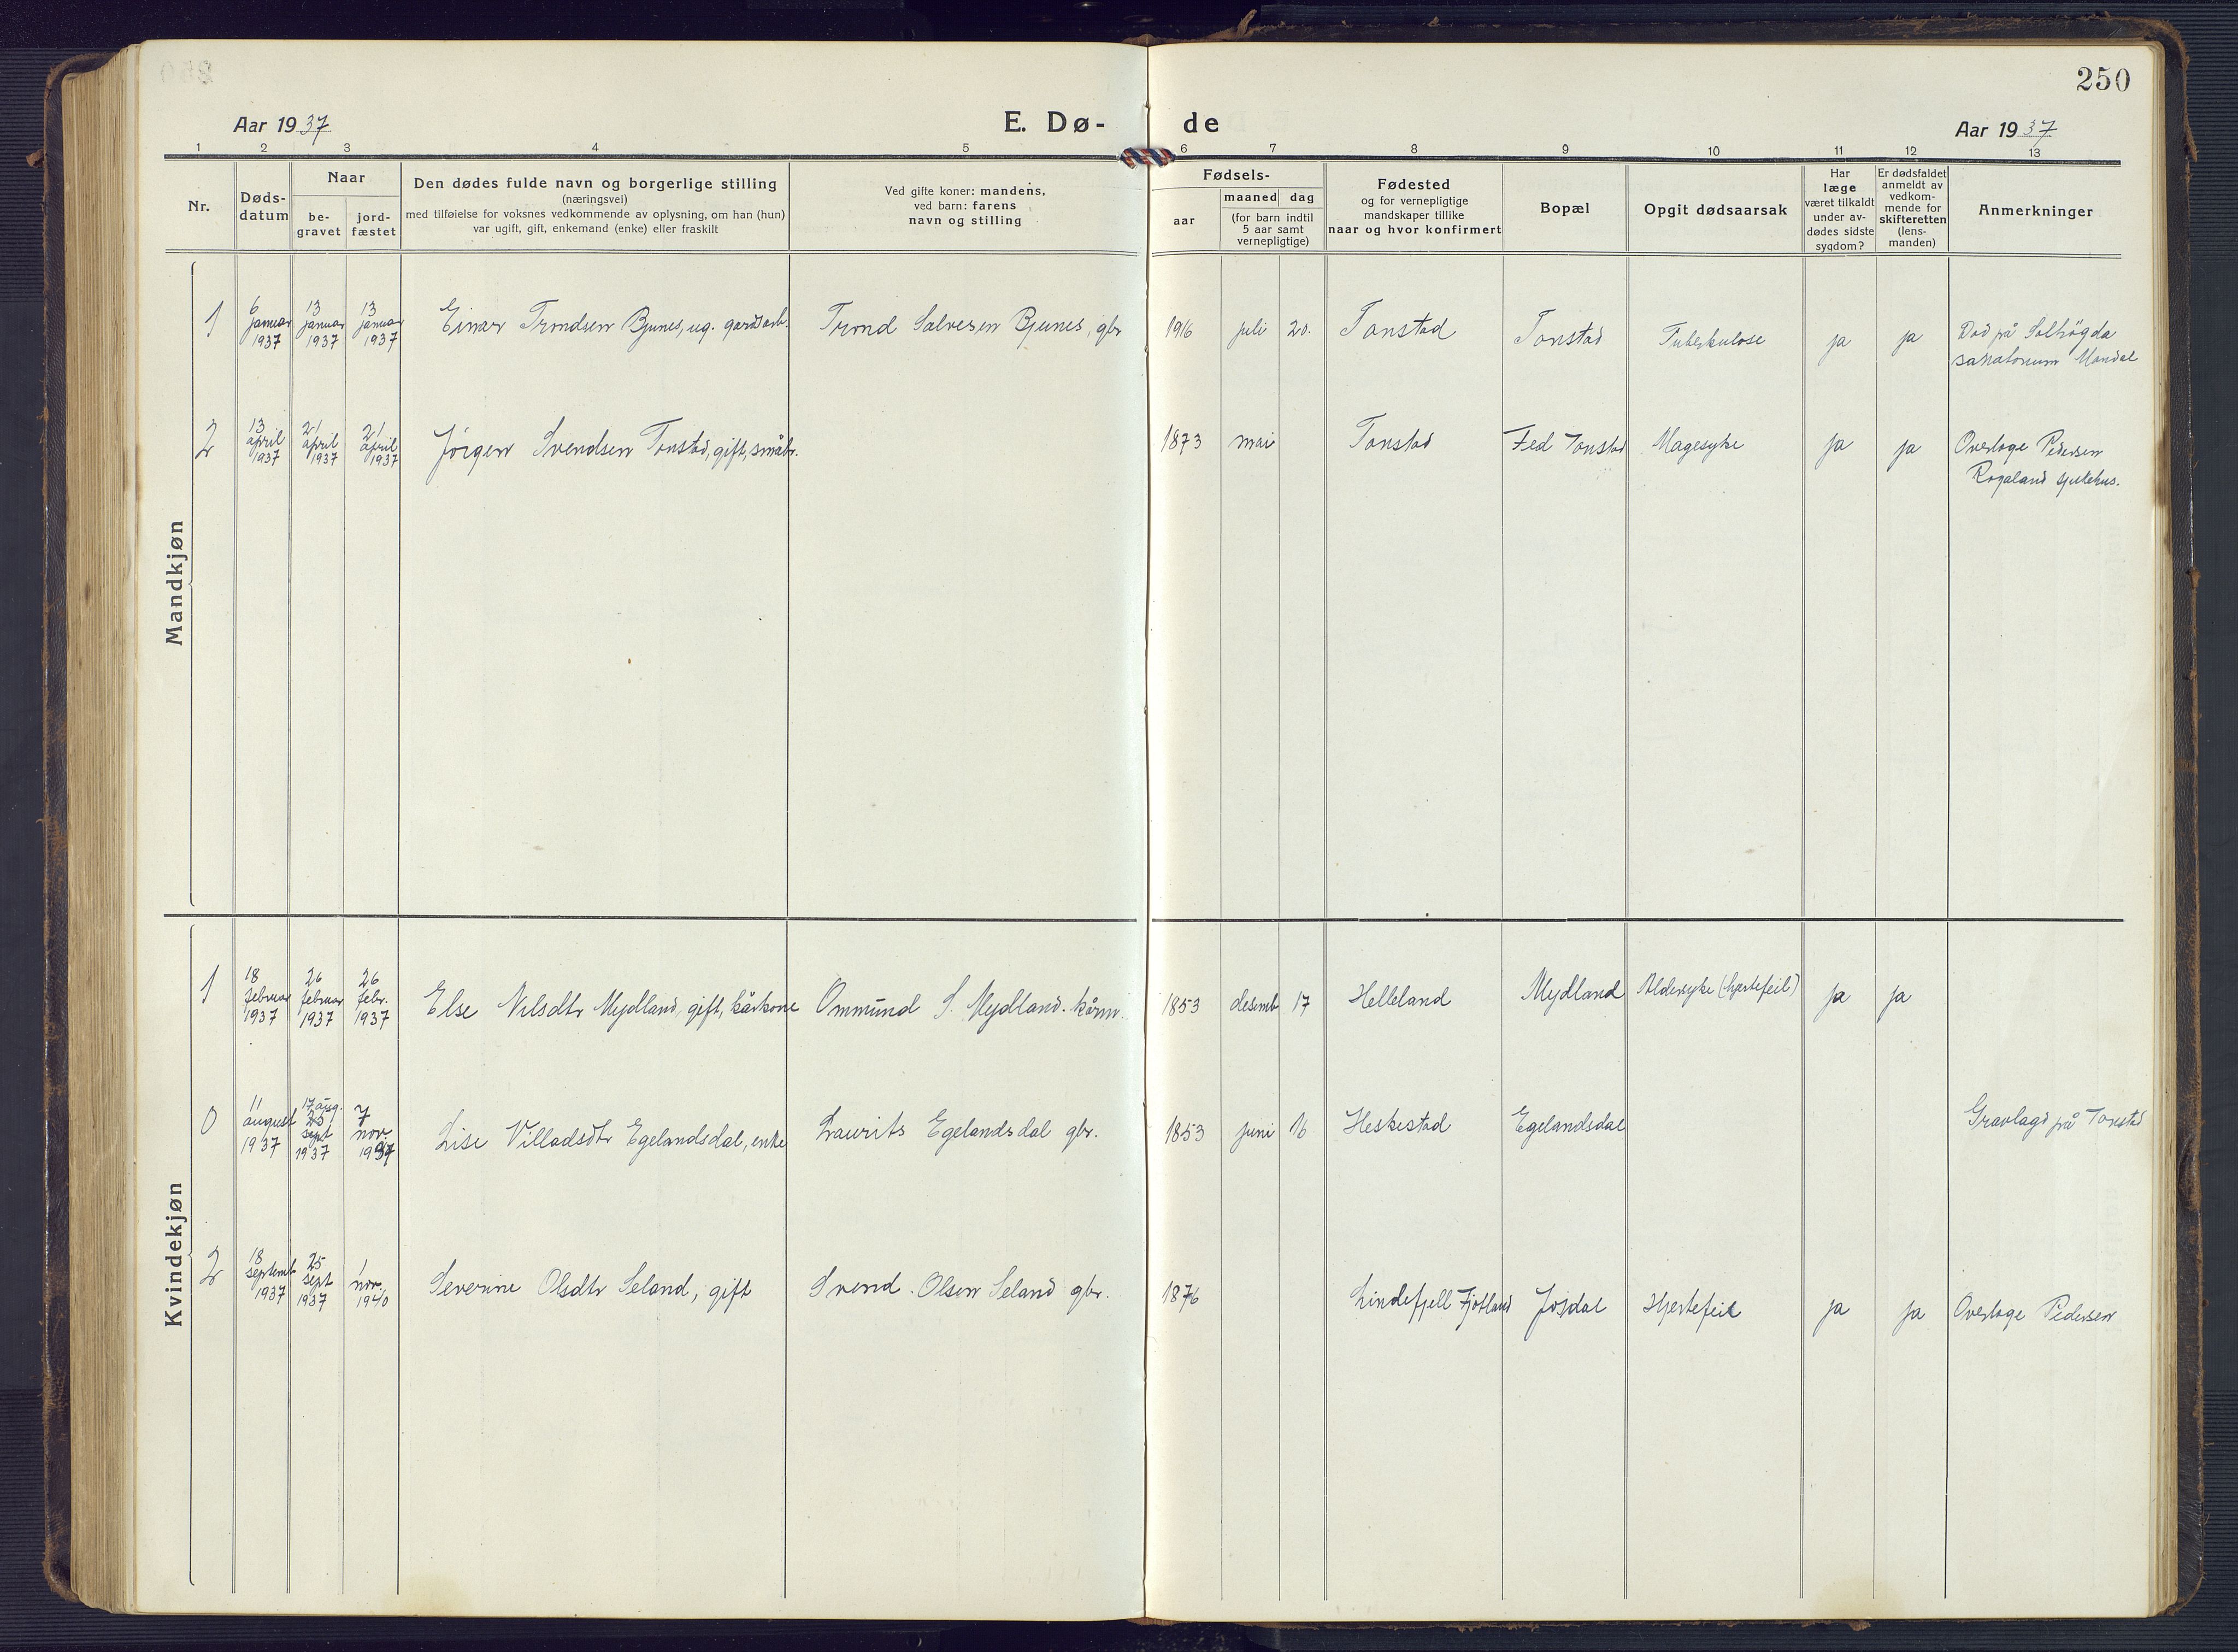 250
Aar 1937
E. Dø-
de
Aar 1937
1 2 3 4 5 6 7 8 9 10 11 12 13
Nr.
Døds-
datum
Naar
be-
gravet
jord-
fæstet
Den dødes fulde navn og borgerlige stilling
(næringsvei)
med tilføielse for voksnes vedkommende av oplysning, om han (hun)
var ugift, gift, enkemand (enke) eller fraskilt
Ved gifte koner: mandens,
ved barn: farens
navn og stilling
Fødsels-
aar
maaned dag
(for barn indtil
5 aar samt
vernepligtige)
Fødested
og for vernepligtige
mandskaper tillike
naar og hvor konfirmert
Bopæl
Opgit dødsaarsak
Har
læge
været tilkaldt
under av-
dødes sidste
sygdom?
Er dødsfaldet
anmeldt av
vedkom-
mende for
skifteretten
(lens-
manden)
Anmerkninger
Mandkjøn
1
6
januar
1937
13
januar
1937
13
januar
1937
Einar Trondsen Bjunes, ug. gardsarb.
Trond Salvesen Bjunes, gbr
1916
juli
20.
Tonstad
Tonstad
Tuberkulose
ja
ja
Död på Solhögda
sanatorium Mandal
2
13
april
1937
21
april
1937
21
april
1937
Jörgen Svendsen Tonstad, gift, småbr.
1873
mai
Tonstad
Fed Tonstad
Magesyke
ja
ja
Overlæge Pedersen
Rogaland sjukehus.
Kvindekjøn
1
18
februar
1937
26
februar
1937
26
febr.
1937
Else Nilsdtr Mydland, gift, kårkone
Ommund S. Mydland. kårm.
1853
desemb
17
Helleland
Mydland
Aldersyke (hjertefeil)
ja
ja
0
11
august
1937
17 aug.
25
sept
1937
7
nov.
1937
Lise Villadsdtr Egelandsdal, enke
Laurits Egelandsdal gbr.
1853
juni
16
Heskestad
Egelandsdal
Gravlagd på Tonstad
2
18
septemb
1937
25
sept
1937
1
nov.
1940
Severine Olsdtr Seland, gift
Svend. Olsen Seland gbr.
1876
Lindefjell Fjotland
Josdal
Hjertefeil
ja
ja
Overlæge Pedersen